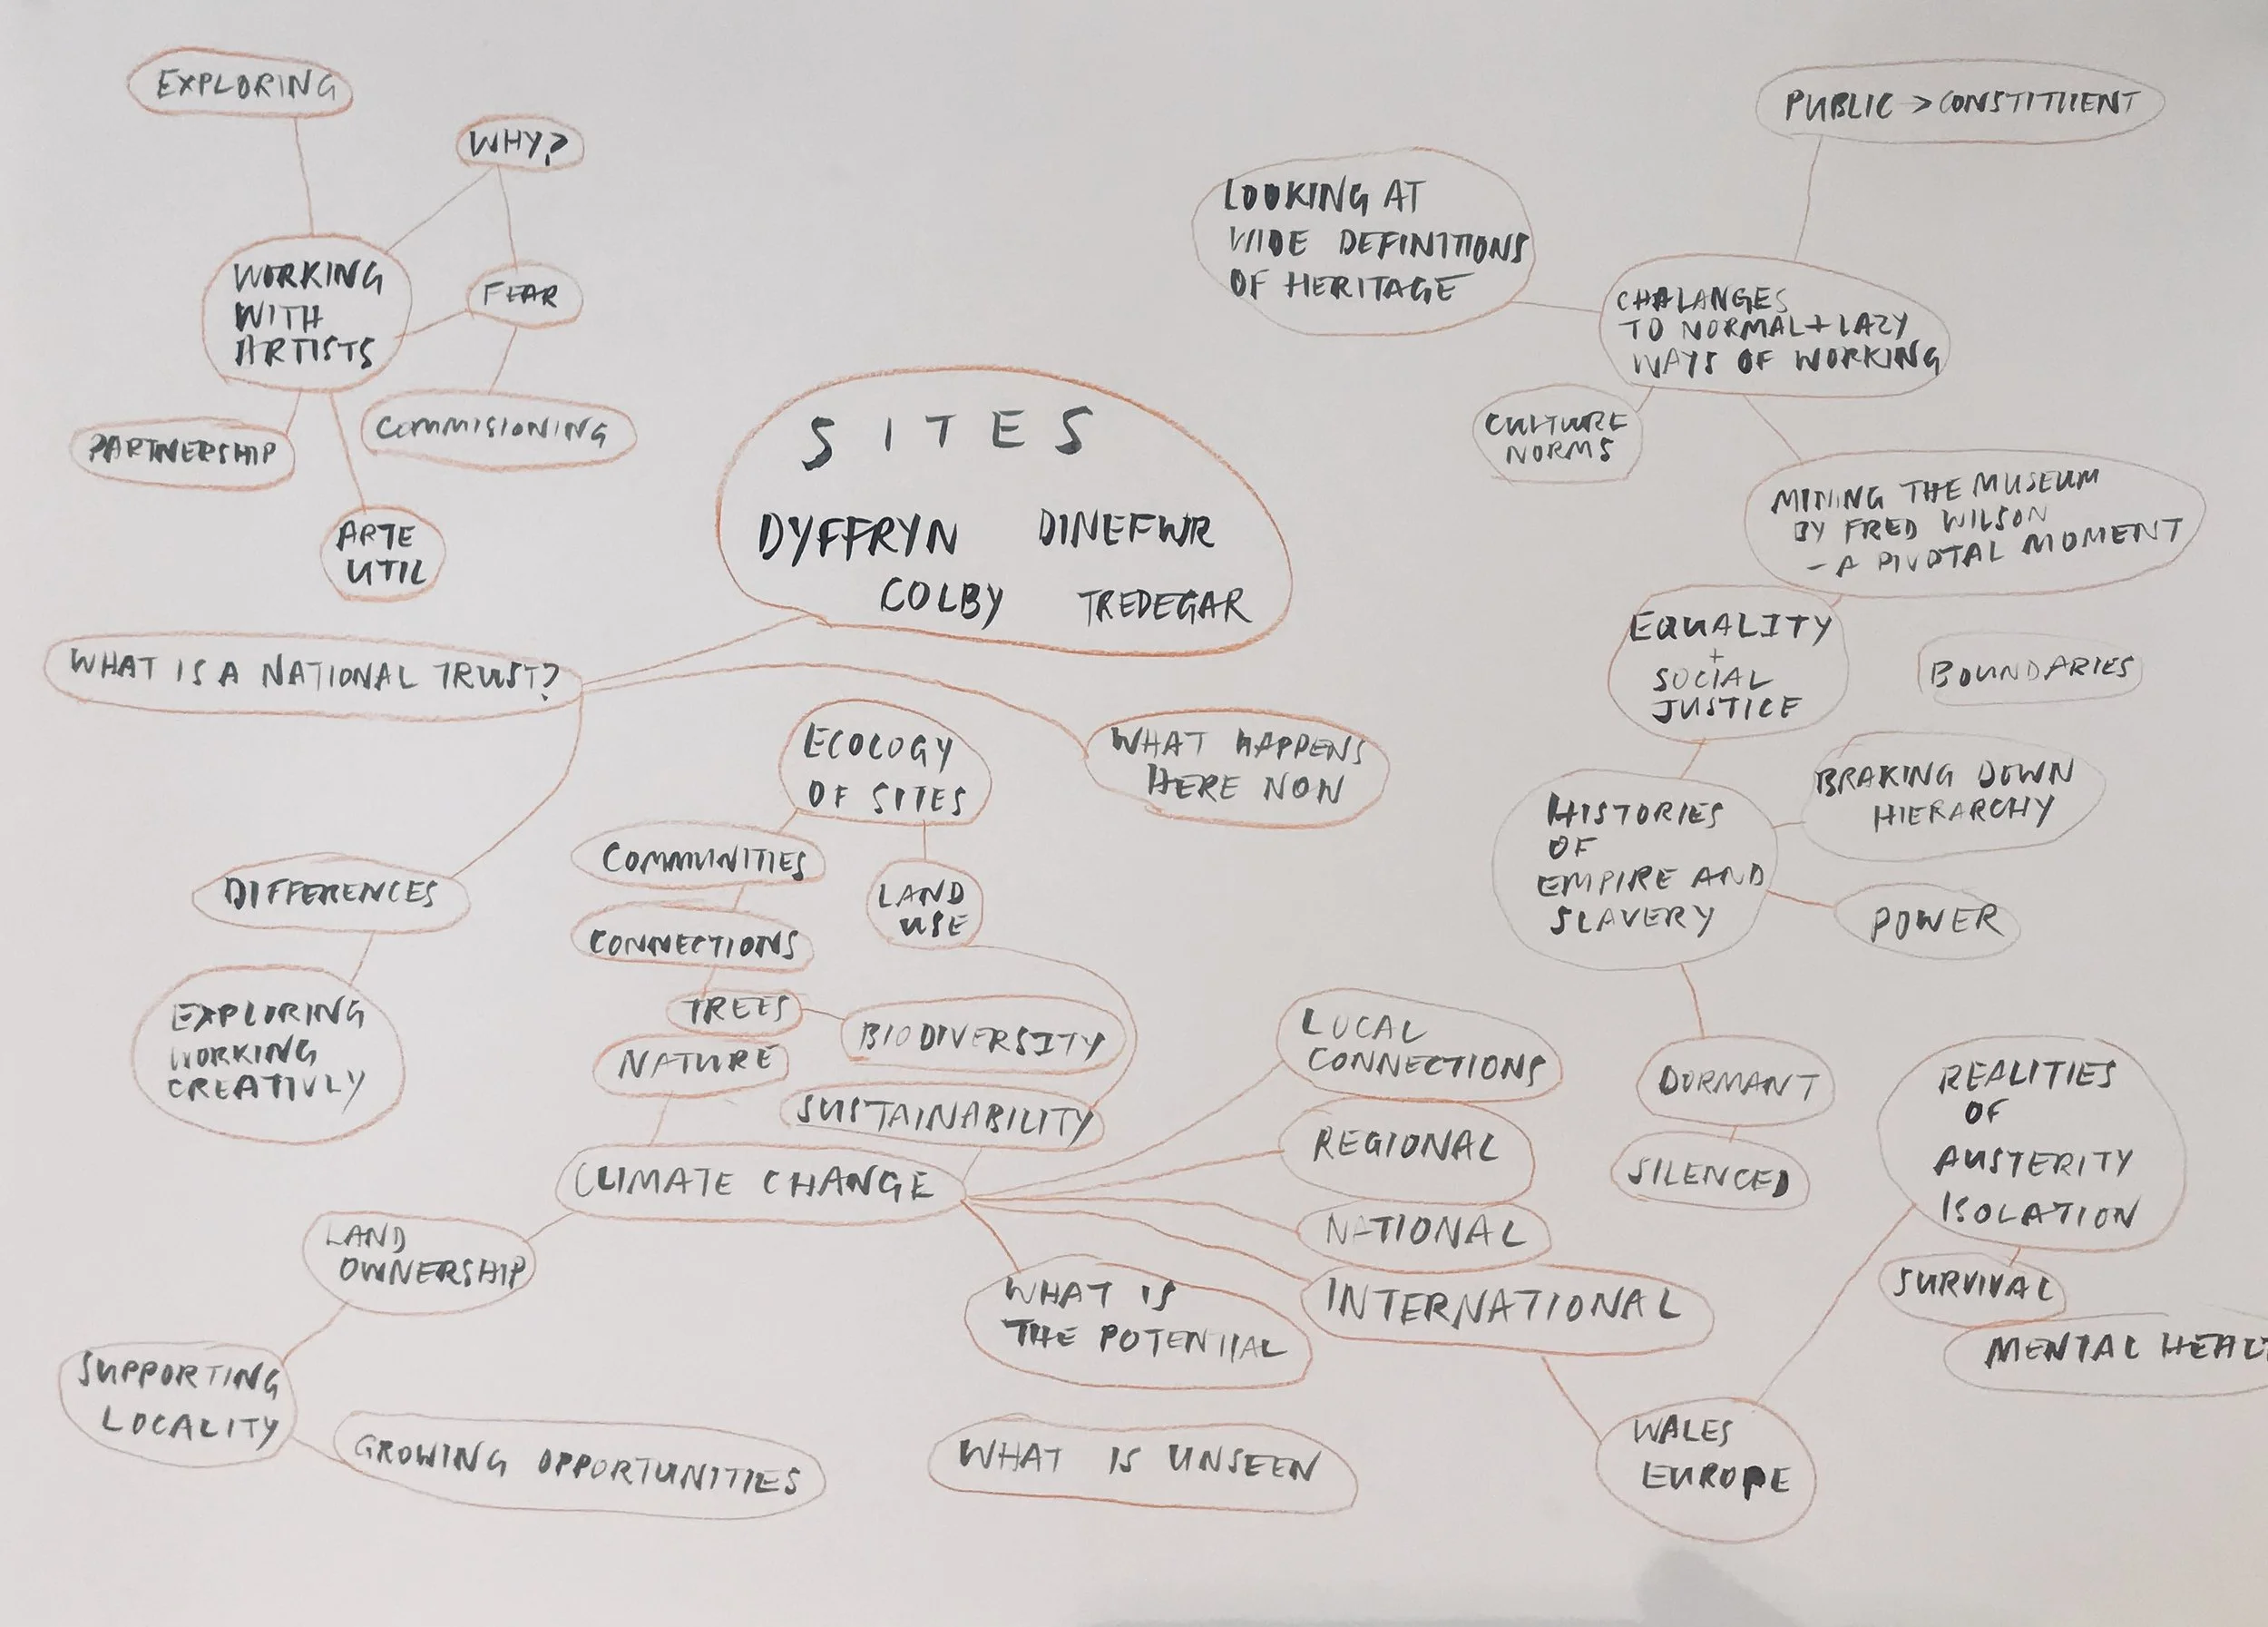 EXPLORING
WHY?
WORKING
WITH
ARTISTS
FEAR
PARTNERSHIP
COMMISIONING
ARTE
UTIL
SITES
DYFFRYN DINEFWR
COLBY TREDEGAR
PUBLIC > CONSTITUENT
LOOKING AT
WIDE DEFINITIONS
OF HERITAGE
CHALANGES
TO NORMAL + LAZY
WAYS OF WORKING
CULTURE
NORMS
MINING THE MUSEUM
BY FRED WILSON
- A PIVOTAL MOMENT
EQUALITY
+
SOCIAL
JUSTICE
BOUNDARIES
WHAT IS A NATIONAL TRUST?
WHAT HAPPENS
HERE NOW
ECOLOGY
OF SITES
COMMUNITIES
LAND
USE
CONNECTIONS
TREES
BIODIVERSITY
NATURE
SUSTAINABILITY
DIFFERENCES
EXPLORING
WORKING
CREATIVLY
HISTORIES
OF
EMPIRE AND
SLAVERY
BRAKING DOWN
HIERARCHY
POWER
DORMANT
SILENCED
CLIMATE CHANGE
LOCAL
CONNECTIONS
REGIONAL
NATIONAL
INTERNATIONAL
WHAT IS
THE POTENTIAL
WHAT IS UNSEEN
LAND
OWNERSHIP
SUPPORTING
LOCALITY
GROWING OPPORTUNITIES
REALITIES
OF
AUSTERITY
ISOLATION
SURVIVAL
MENTAL HEAL
WALES
EUROPE